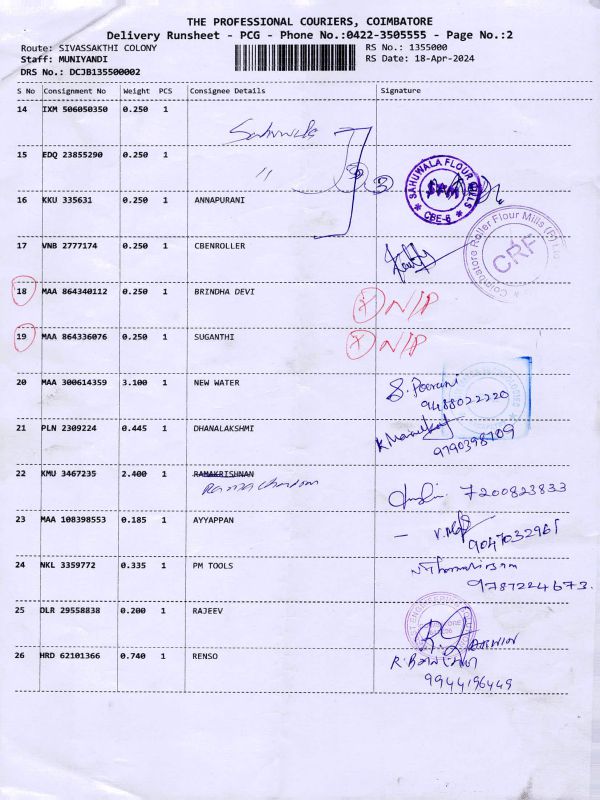 THE PROFESSIONAL COURIERS, COIMBATORE
Delivery Runsheet - PCG - Phone No.:0422-3505555 - Page No.:2
Route: SIVASSAKTHI COLONY RS No.: 1355000
Staff: MUNIYANDI RS Date: 18-Apr-2024
DRS No.: DCJB135500002
S No Consignment No Weight PCS Consignee Details Signature
14 IXM 506050350 0.250 1 Sahuwala
15 EDQ 23855290 0.250 1 〃
SAHUWALA FLOUR MILLS
CBE-6
16 KKU 335631 0.250 1 ANNAPURANI
17 VNB 2777174 0.250 1 CBENROLLER
Coimbatore Roller Flour Mills (P) Ltd
CRF
18 MAA 864340112 0.250 1 BRINDHA DEVI X N/P
19 MAA 864336076 0.250 1 SUGANTHI X N/P
20 MAA 300614359 3.100 1 NEW WATER S. Poorani
9488022220
21 PLN 2309224 0.445 1 DHANALAKSHMI
9790398709
22 KMU 3467235 2.400 1 RAMAKRISHNAN
7200823833
23 MAA 108398553 0.185 1 AYYAPPAN
9047032961
24 NKL 3359772 0.335 1 PM TOOLS
9787224673.
25 DLR 29558838 0.200 1 RAJEEV
26 HRD 62101366 0.740 1 RENSO
9944196449